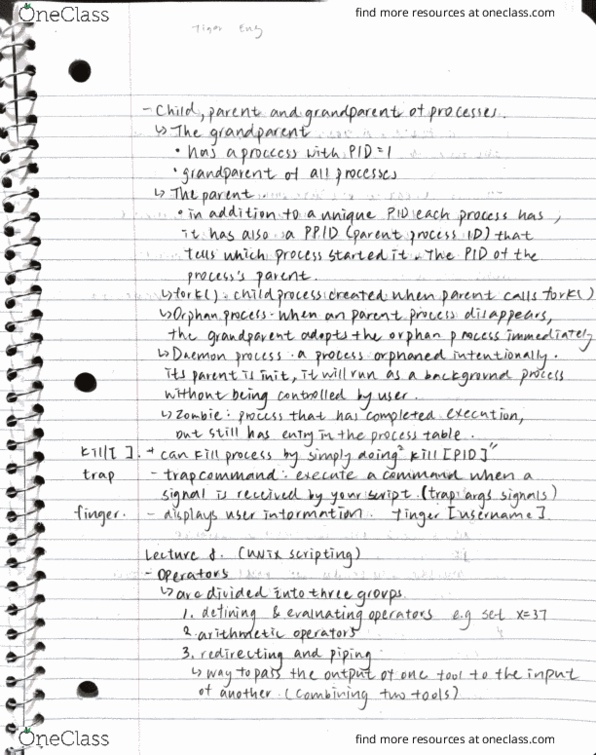 OneClass
find more resources at oneclass.com
Tiger Eng
- Child, parent and grandparent of processes.
↳ The grandparent
• has a proccess with PID = 1
• grandparent of all processes
↳ The parent
• in addition to a unique PID each process has,
it has also a PPID (parent process ID) that
tells which process started it. The PID of the
process's parent.
↳ fork() : child process created when parent calls fork()
↳ Orphan process - when an parent process disappears,
the grandparent adopts the orphan process immediately
↳ Daemon process - a process orphaned intentionally.
its parent is init, it will run as a background process
without being controlled by user.
↳ Zombie : process that has completed execution,
but still has entry in the process table.
kill[ ]. → can kill process by simply doing "kill [PID]"
trap - trap command : execute a command when a
signal is received by your script. (trap args signals)
finger. - displays user information. finger [username]
Lecture 8. (Unix scripting)
- Operators
↳ are divided into three groups
1. defining & evaluating operators e.g set x=37
2. arithmetic operators
3. redirecting and piping
↳ way to pass the output of one tool to the input
of another. (combining two tools)
OneClass
find more resources at oneclass.com